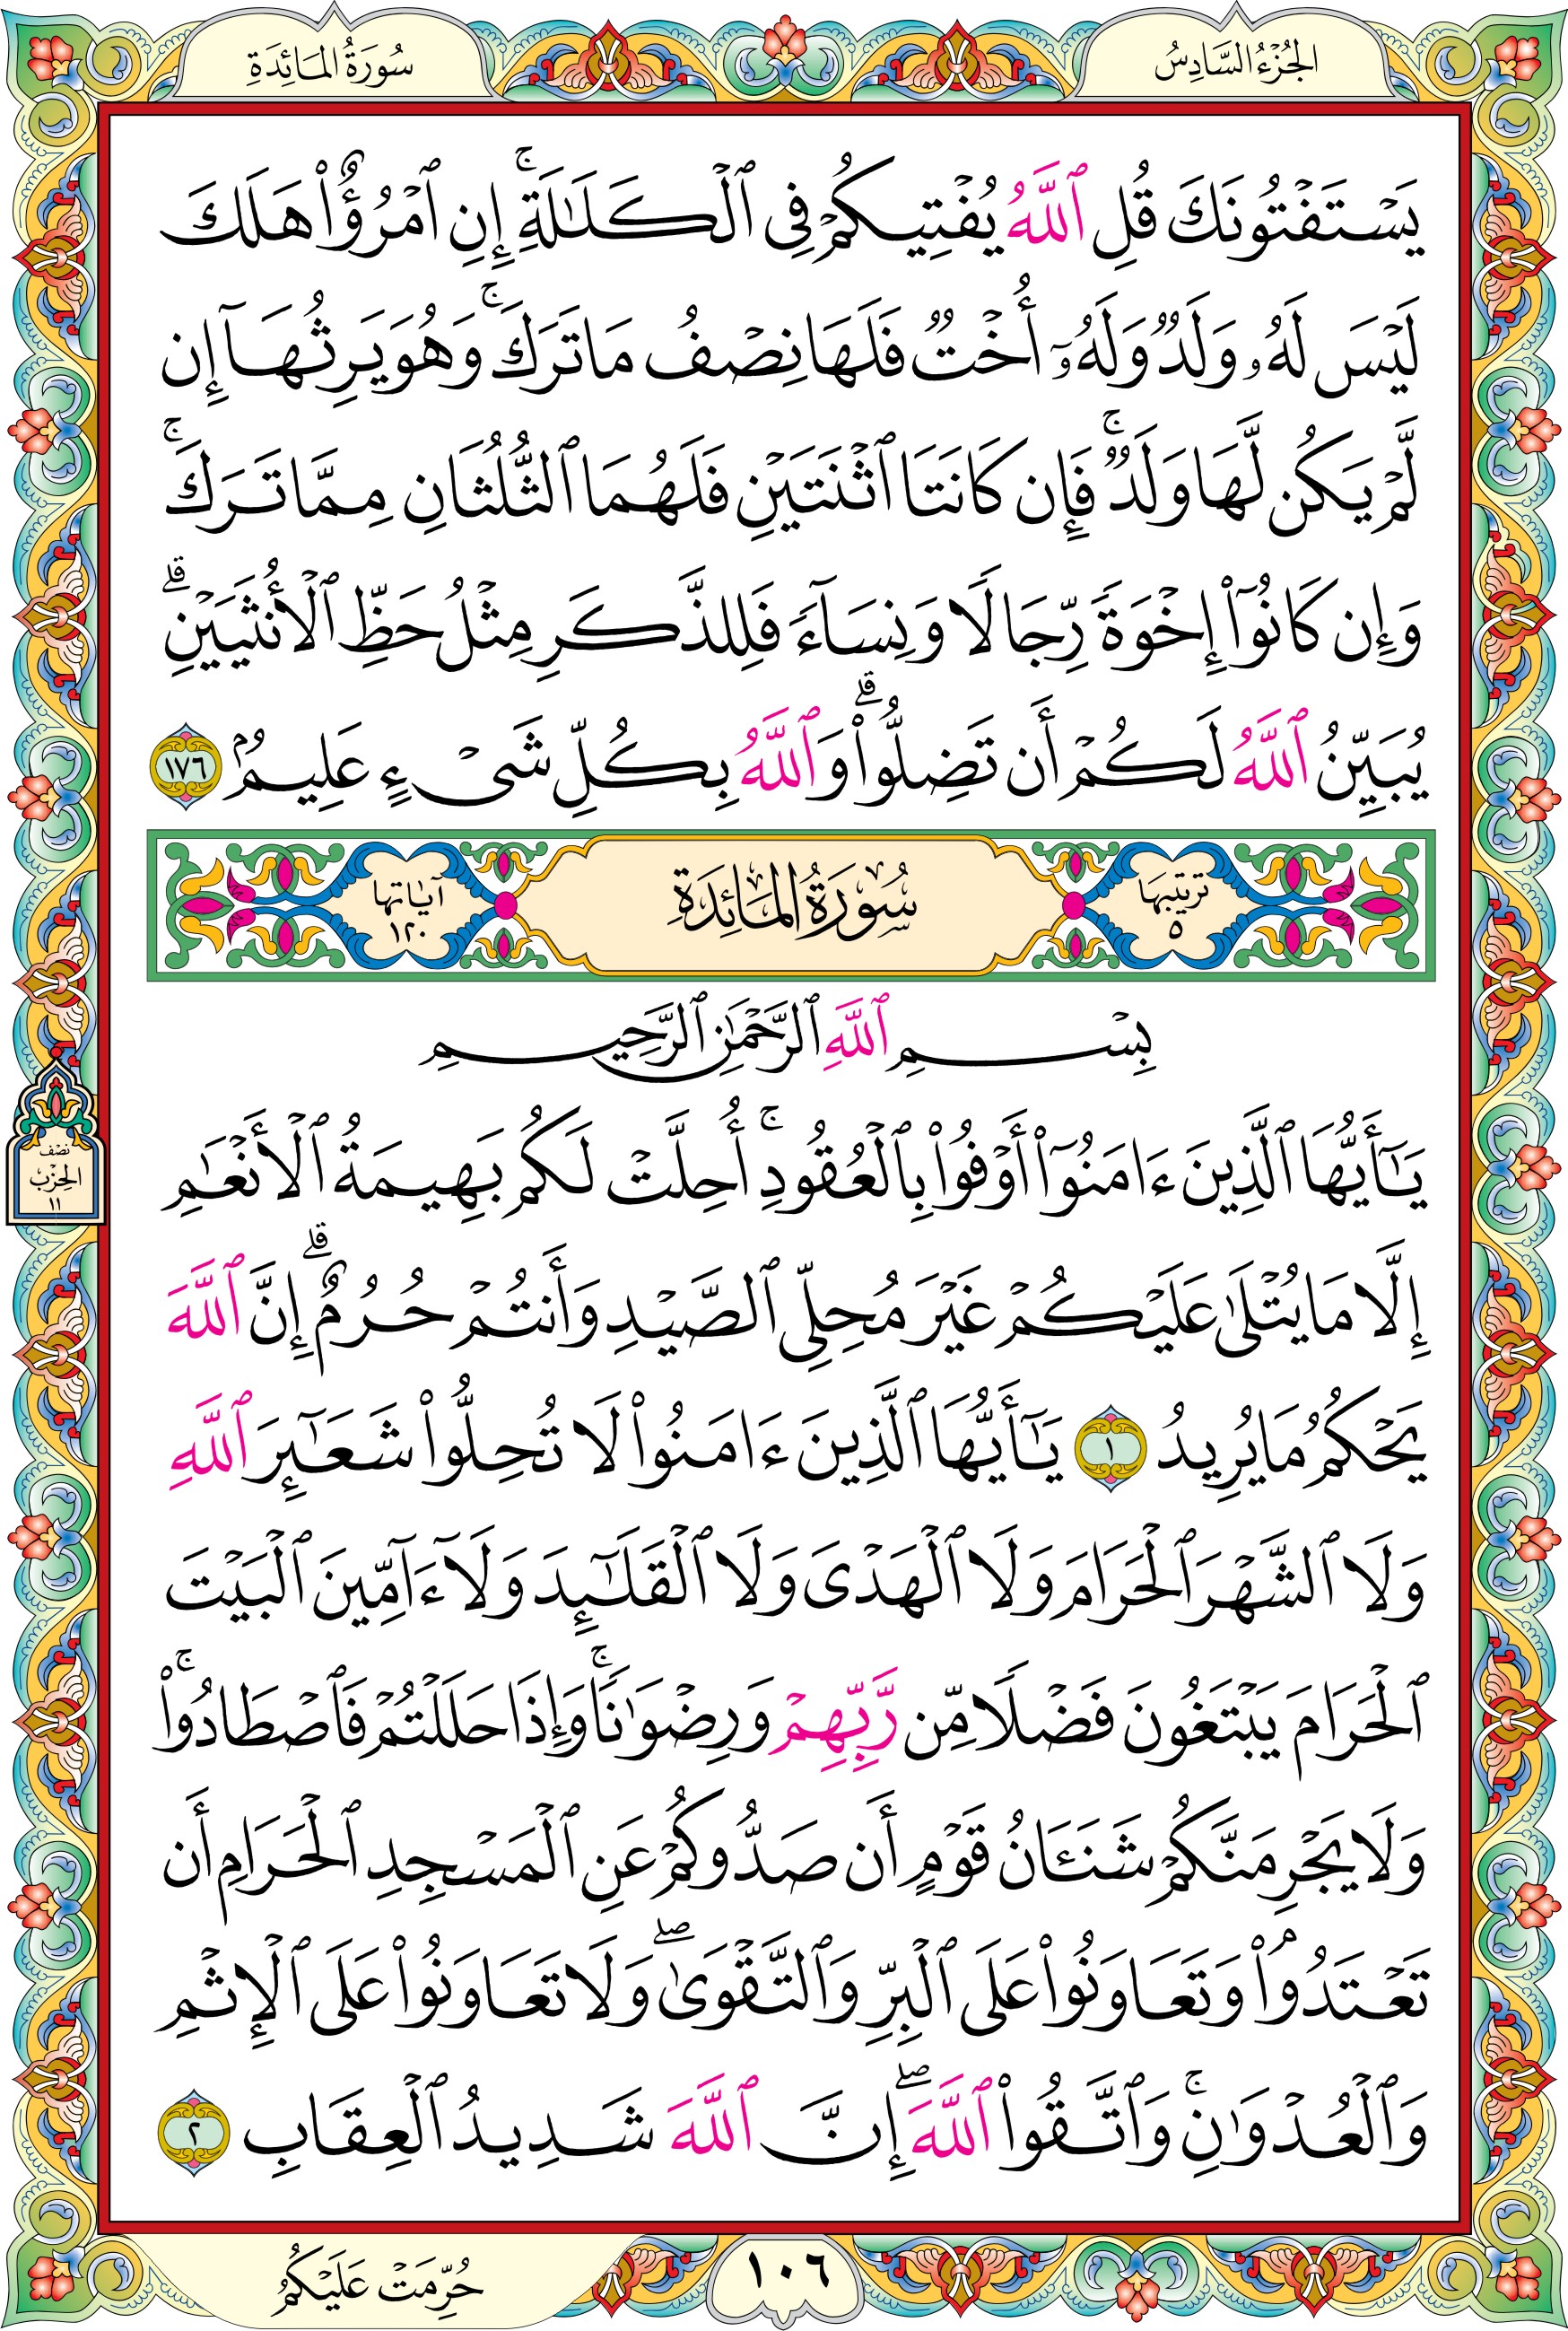 الجُزْءُ السَّادِسُ
سُورَةُ المَائِدَةِ
يَسْتَفْتُونَكَ قُلِ ٱللَّهُ يُفْتِيكُمْ فِى ٱلْكَلَـٰلَةِ ۚ إِنِ ٱمْرُؤٌا۟ هَلَكَ
لَيْسَ لَهُۥ وَلَدٌ وَلَهُۥٓ أُخْتٌ فَلَهَا نِصْفُ مَا تَرَكَ ۚ وَهُوَ يَرِثُهَآ إِن
لَّمْ يَكُن لَّهَا وَلَدٌ ۚ فَإِن كَانَتَا ٱثْنَتَيْنِ فَلَهُمَا ٱلثُّلُثَانِ مِمَّا تَرَكَ ۚ
وَإِن كَانُوٓا۟ إِخْوَةً رِّجَالًا وَنِسَآءً فَلِلذَّكَرِ مِثْلُ حَظِّ ٱلْأُنثَيَيْنِ ۗ
يُبَيِّنُ ٱللَّهُ لَكُمْ أَن تَضِلُّوا۟ ۗ وَٱللَّهُ بِكُلِّ شَىْءٍ عَلِيمٌۢ ١٧٦
تَرتيبها ٥
سُورَةُ المَائِدَةِ
آياتها ١٢٠
بِسْمِ ٱللَّهِ ٱلرَّحْمَـٰنِ ٱلرَّحِيمِ
يَـٰٓأَيُّهَا ٱلَّذِينَ ءَامَنُوٓا۟ أَوْفُوا۟ بِٱلْعُقُودِ ۚ أُحِلَّتْ لَكُم بَهِيمَةُ ٱلْأَنْعَـٰمِ
إِلَّا مَا يُتْلَىٰ عَلَيْكُمْ غَيْرَ مُحِلِّى ٱلصَّيْدِ وَأَنتُمْ حُرُمٌ ۗ إِنَّ ٱللَّهَ
يَحْكُمُ مَا يُرِيدُ ١ يَـٰٓأَيُّهَا ٱلَّذِينَ ءَامَنُوا۟ لَا تُحِلُّوا۟ شَعَـٰٓئِرَ ٱللَّهِ
وَلَا ٱلشَّهْرَ ٱلْحَرَامَ وَلَا ٱلْهَدْىَ وَلَا ٱلْقَلَـٰٓئِدَ وَلَآ ءَآمِّينَ ٱلْبَيْتَ
ٱلْحَرَامَ يَبْتَغُونَ فَضْلًا مِّن رَّبِّهِمْ وَرِضْوَٰنًا ۚ وَإِذَا حَلَلْتُمْ فَٱصْطَادُوا۟ ۚ
وَلَا يَجْرِمَنَّكُمْ شَنَـَٔانُ قَوْمٍ أَن صَدُّوكُمْ عَنِ ٱلْمَسْجِدِ ٱلْحَرَامِ أَن
تَعْتَدُوا۟ ۘ وَتَعَاوَنُوا۟ عَلَى ٱلْبِرِّ وَٱلتَّقْوَىٰ ۖ وَلَا تَعَاوَنُوا۟ عَلَى ٱلْإِثْمِ
وَٱلْعُدْوَٰنِ ۚ وَٱتَّقُوا۟ ٱللَّهَ ۖ إِنَّ ٱللَّهَ شَدِيدُ ٱلْعِقَابِ ٢
نصْف
الحِزْب
١١
١٠٦
حُرِّمَتْ عَلَيْكُمُ